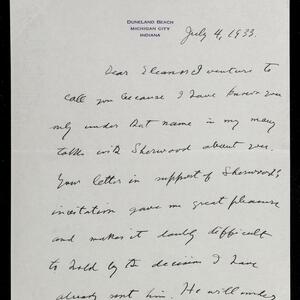 DUNELAND BEACH
MICHIGAN CITY
INDIANA
July 4, 1933.
Dear Eleanor I venture to
call you because I have known you
only under that name in my many
talks with Sherwood about you.
Your letter in support of Sherwood's
invitation gave me great pleasure
and makes it doubly difficult
to hold by the decision I have
already sent him. He will